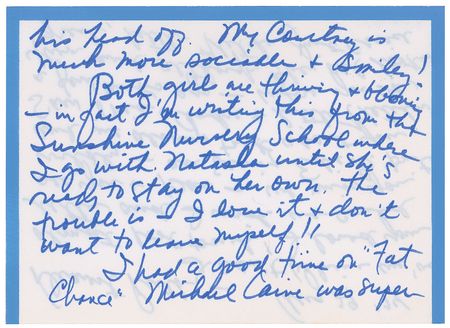 his head off. My Courtney is
much more sociable & smiley!
Both girls are thriving & blooming
– in fact I'm writing this from the
Sunshine Nursery School where
I go with Natasha until she's
ready to stay on her own. The
trouble is – I love it & don't
want to leave myself!!
I had a good time on "Fat
Chance" Michael Caine was super